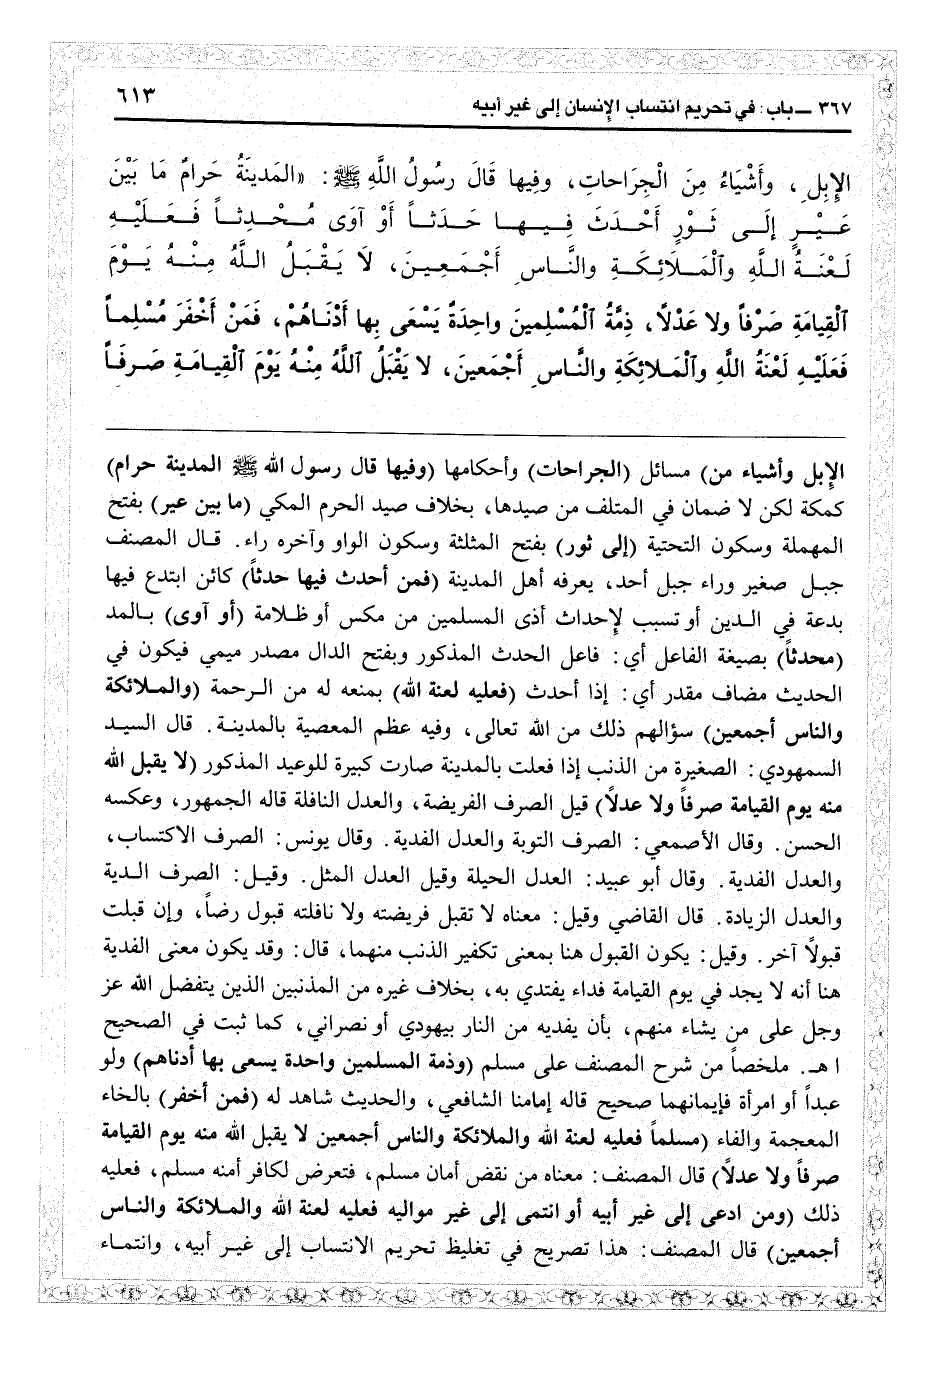 ٣٦٧ ــ باب: في تحريم انتساب الإنسان إلى غير أبيه ٦١٣
الإِبِلِ، وأَشْيَاءُ مِنَ الْجِرَاحاتِ، وفِيها قَالَ رسُولُ اللَّهِ ﷺ: «المَدينَةُ حَرامٌ مَا بَيْنَ
عَـيْـرٍ إِلَـى ثَـوْرٍ أَحْـدَثَ فِـيـهـا حَـدَثـاً أَوْ آوَى مُـحْـدِثـاً فَـعَـلَـيْـهِ
لَـعْـنَـةُ الـلَّهِ وٱلْمَـلَائِـكَـةِ والنَّـاسِ أَجْـمَـعِـيـنَ، لَا يَـقْـبَـلُ الـلَّهُ مِـنْـهُ يَـوْمَ
ٱلْقِيامَةِ صَرْفاً ولا عَدْلاً، ذِمَّةُ ٱلْمُسْلِمينَ واحِدَةٌ يَسْعَى بِها أَدْنَاهُمْ، فَمَنْ أَخْفَرَ مُسْلِمـاً
فَعَلَيْـهِ لَعْنَةُ اللَّهِ وٱلْمَـلائِكَةِ والنَّاسِ أَجْمَعينَ، لا يَقْبَلُ ٱللَّهُ مِنْـهُ يَوْمَ ٱلْقِيـامَـةِ صَـرفَـاً
الإِبل وأشياء من) مسائل (الجراحات) وأحكامها (وفيها قال رسول الله ﷺ المدينة حرام)
كمكة لكن لا ضمان في المتلف من صيدها، بخلاف صيد الحرم المكي (ما بين عير) بفتح
المهملة وسكون التحتية (إلى ثور) بفتح المثلثة وسكون الواو وآخره راء. قـال المصنف
جبـل صغير وراء جبل أحد، يعرفه أهل المدينة (فمن أحدث فيها حدثاً) كائن ابتدع فيها
بدعة في الـدين أو تسبب لإحداث أذى المسلمين من مكس أو ظـلامة (أو آوى) بـالمد
(محدثاً) بصيغة الفاعل أي: فاعل الحدث المذكور وبفتح الدال مصدر ميمي فيكون في
الحديث مضاف مقدر أي: إذا أحدث (فعليه لعنة الله) بمنعه له من الـرحمة (والمـلائكة
والناس أجمعين) سؤالهم ذلك من الله تعالى، وفيه عظم المعصية بالمدينـة. قال السيـد
السمهودي: الصغيرة من الذنب إذا فعلت بالمدينة صارت كبيرة للوعيد المذكور (لا يقبل الله
منه يوم القيامة صرفاً ولا عدلاً) قيل الصرف الفريضة، والعدل النافلة قاله الجمهور، وعكسه
الحسن. وقال الأصمعي: الصرف التوبة والعدل الفدية. وقال يونس: الصرف الاكتساب،
والعدل الفدية. وقال أبو عبيد: العدل الحيلة وقيل العدل المثل. وقيـل: الصرف الـدية
والعدل الزيادة. قال القاضي وقيل: معناه لا تقبل فريضته ولا نافلته قبول رضاً، وإن قبلت
قبولاً آخر. وقيل: يكون القبول هنا بمعنى تكفير الذنب منهما، قال: وقد يكون معنى الفدية
هنا أنه لا يجد في يوم القيامة فداء يفتدي به، بخلاف غيره من المذنبين الذين يتفضل الله عز
وجل على من يشاء منهم، بأن يفديه من النار بيهودي أو نصراني، كما ثبت في الصحيح
ا هـ. ملخصاً من شرح المصنف على مسلم (وذمة المسلمين واحدة يسعى بها أدناهم) ولو
عبداً أو امرأة فإيمانهما صحيح قاله إمامنا الشافعي، والحديث شاهد له (فمن أخفر) بالخاء
المعجمة والفاء (مسلماً فعليه لعنة الله والملائكة والناس أجمعين لا يقبل الله منه يوم القيامة
صرفاً ولا عدلاً) قال المصنف: معناه من نقض أمان مسلم، فتعرض لكافر أمنه مسلم، فعليه
ذلك (ومن ادعى إلى غير أبيه أو انتمى إلى غير مواليه فعليه لعنة الله والمـلائكة والنـاس
أجمعين) قال المصنف: هذا تصريح في تغليظ تحريم الانتساب إلى غيـر أبيه، وانتمـاء